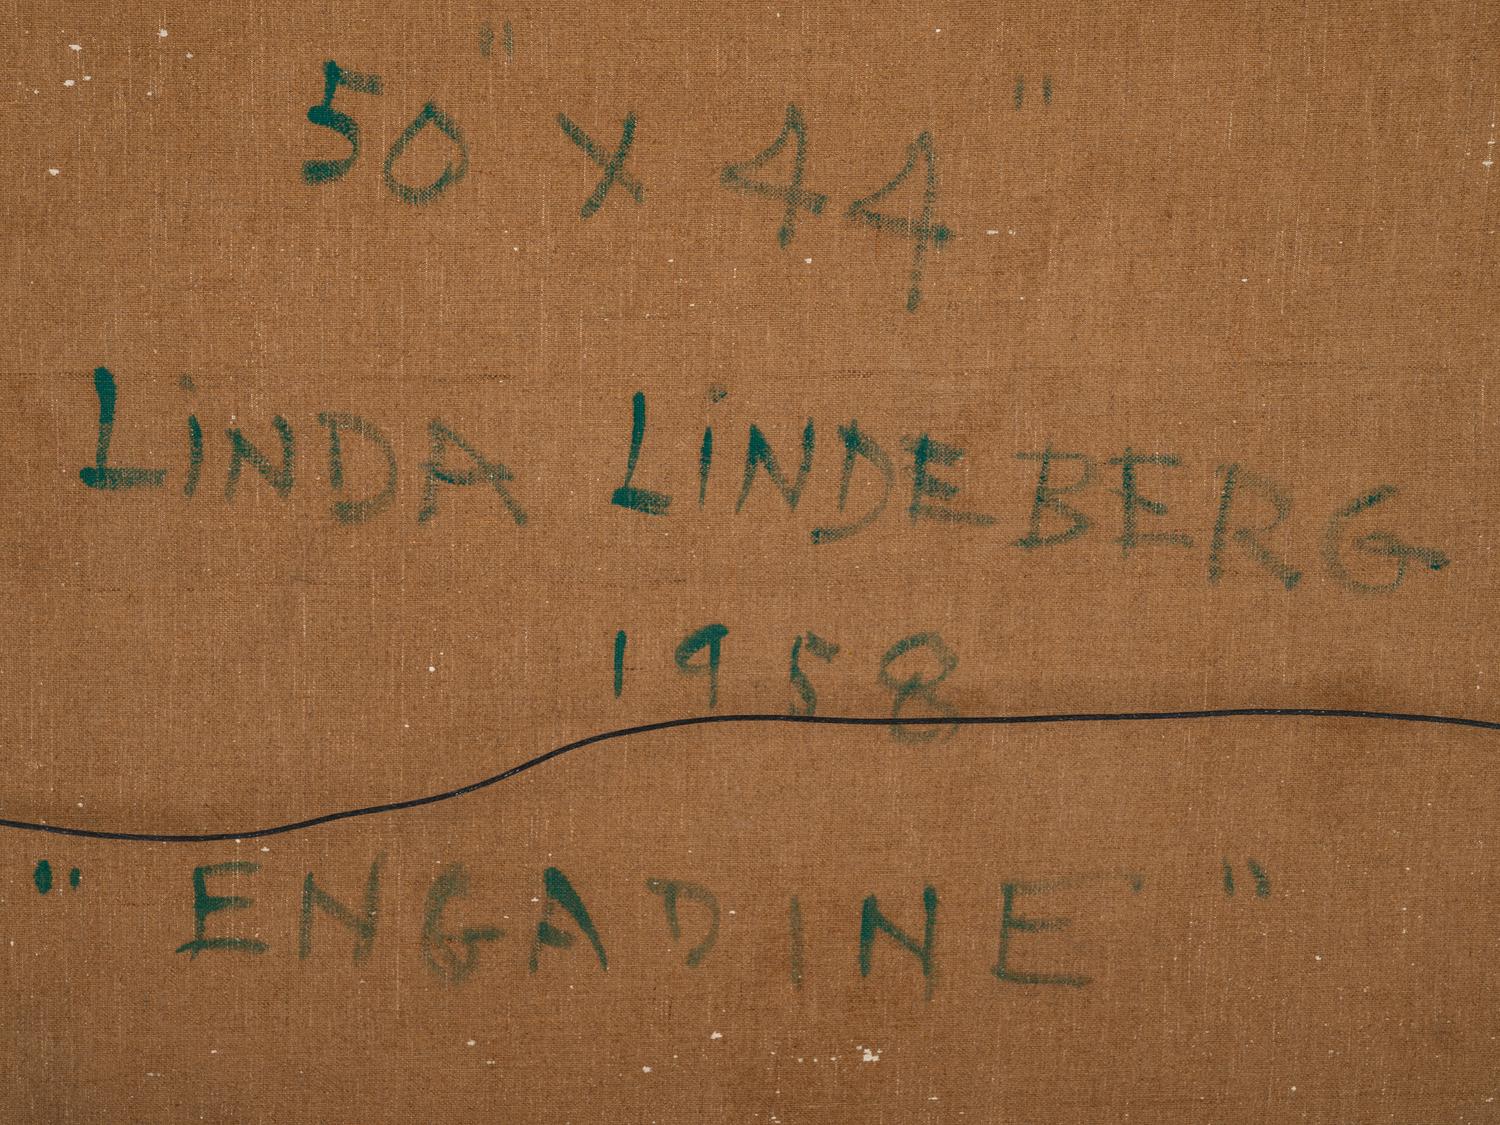 50" x 44"
LiNDA LiNDEBERG
1958
"ENGADINE"